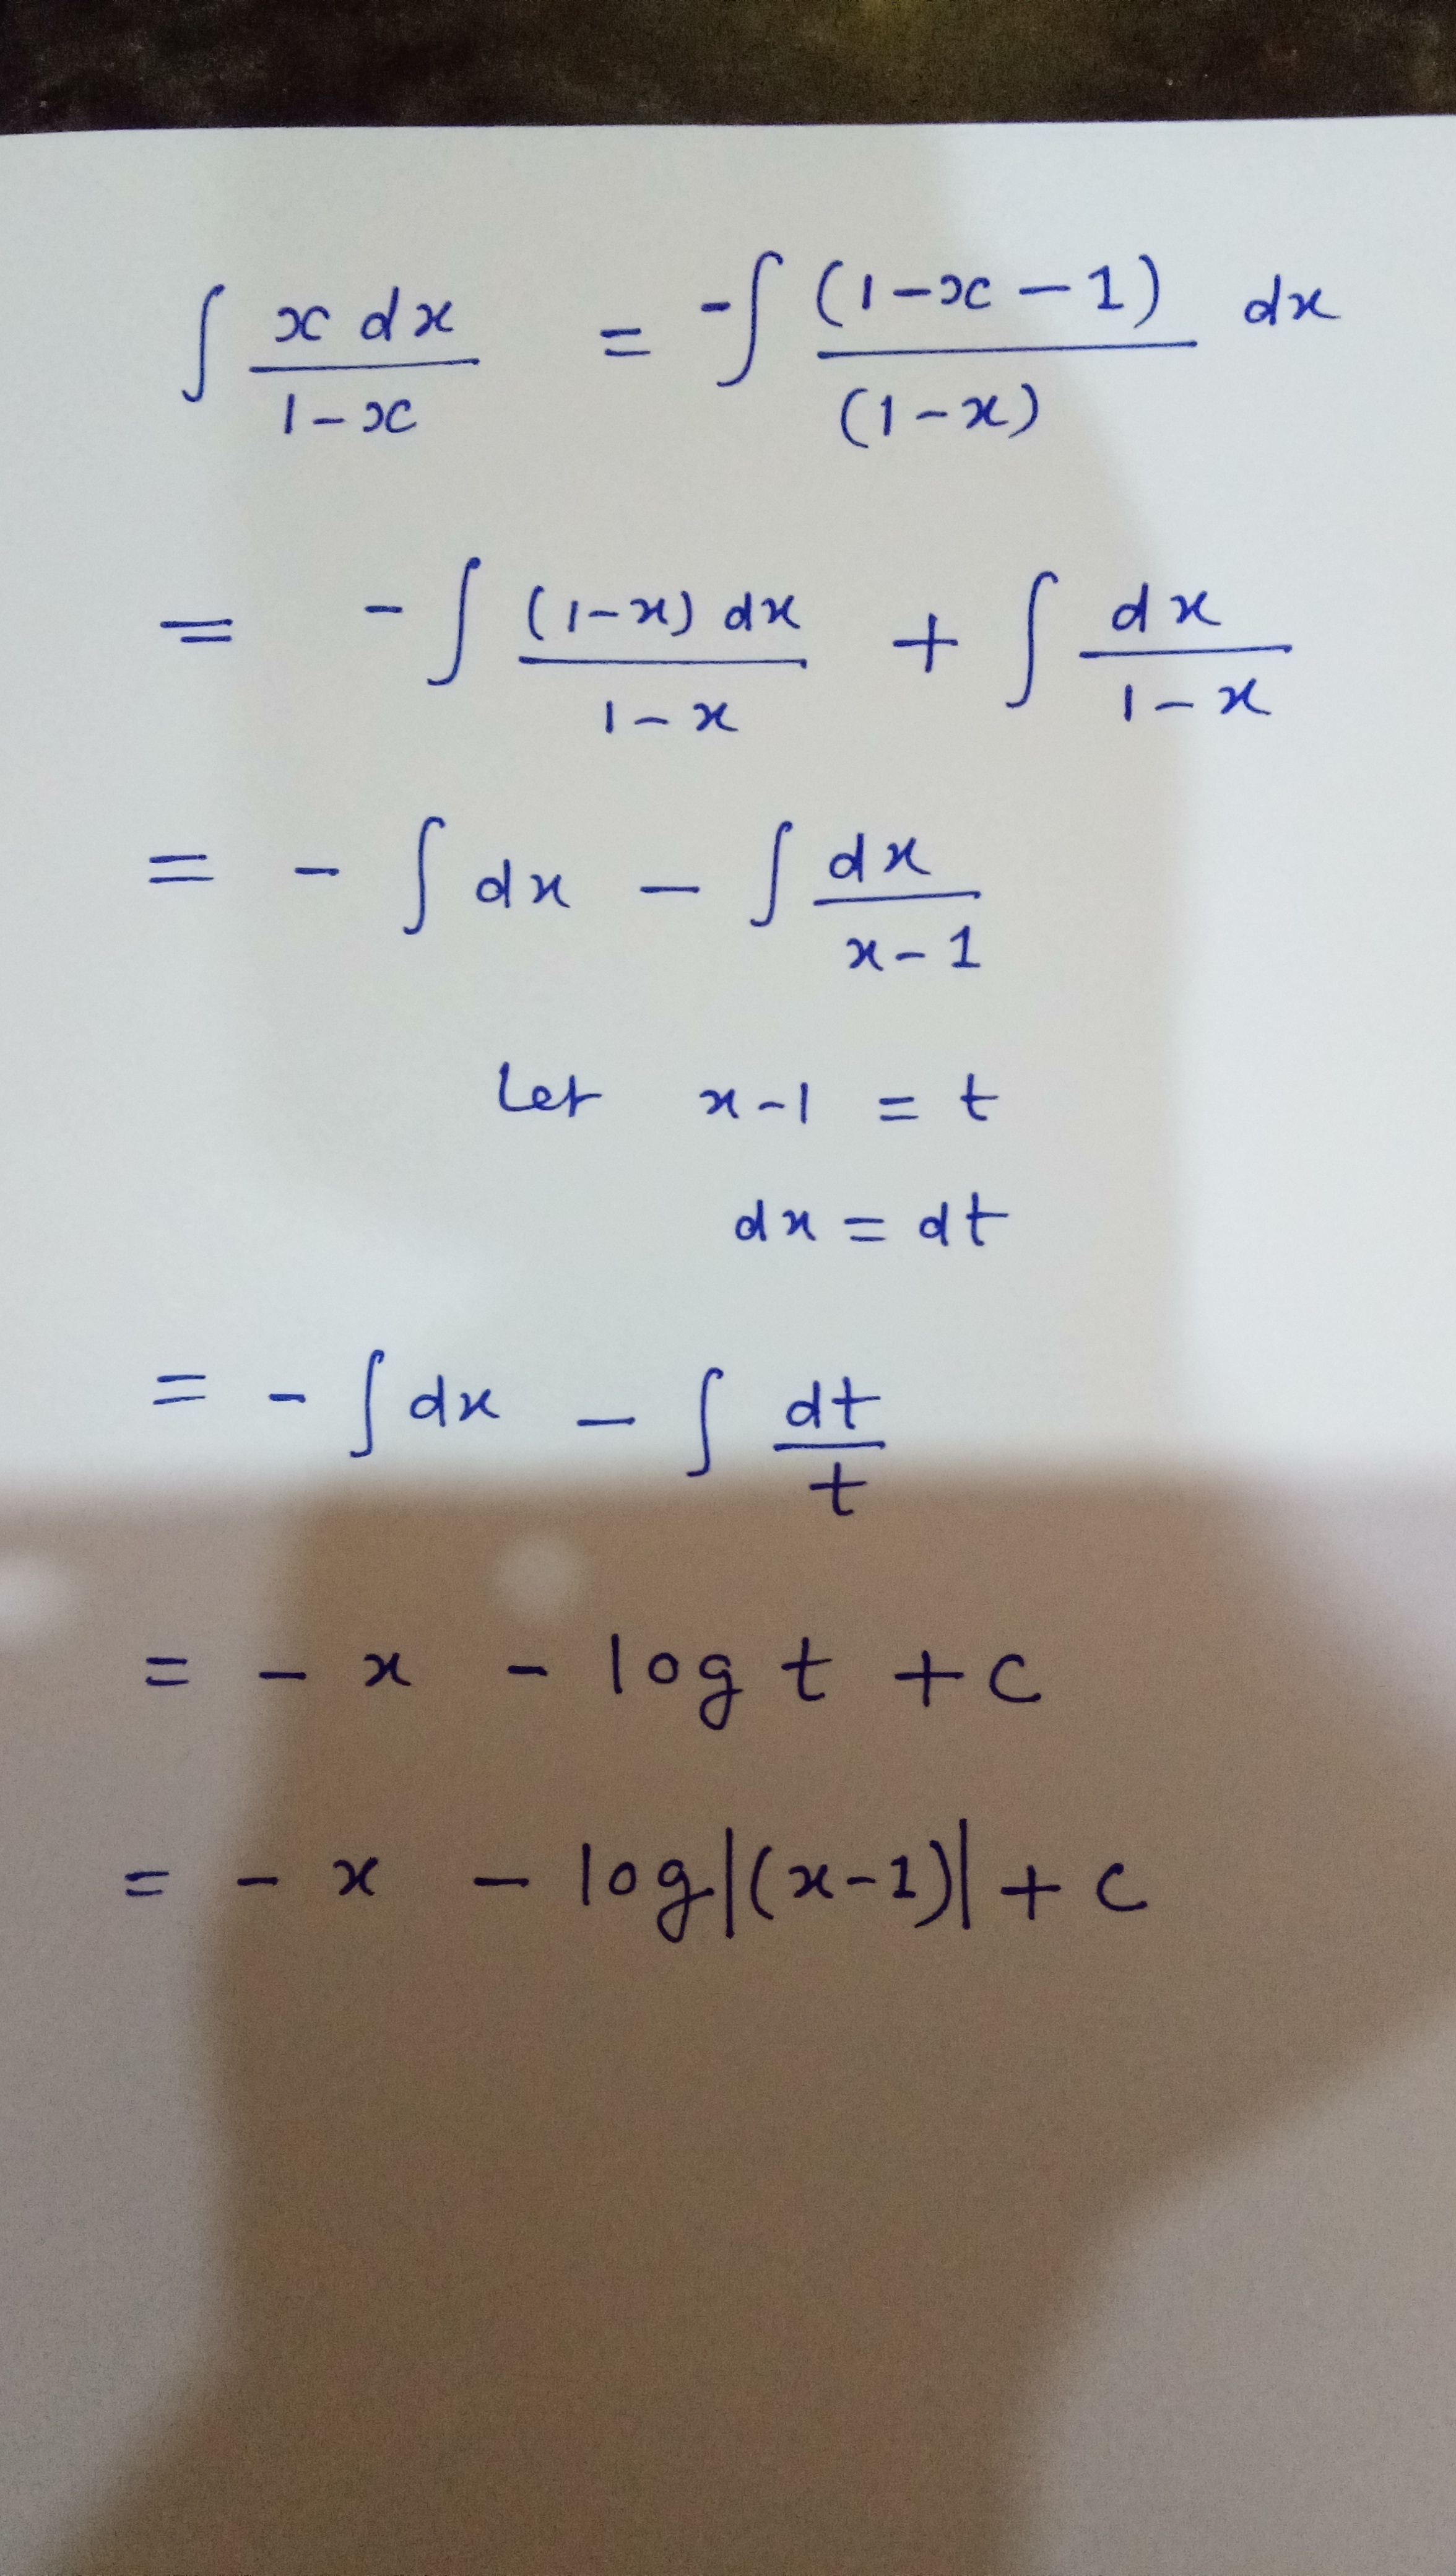 ∫ x dx / 1-x = -∫ (1-x-1) / (1-x) dx
= -∫ (1-x) dx / 1-x + ∫ dx / 1-x
= - ∫ dx - ∫ dx / x-1
Let x-1 = t
dx = dt
= - ∫ dx - ∫ dt / t
= - x - log t + c
= - x - log|(x-1)| + c